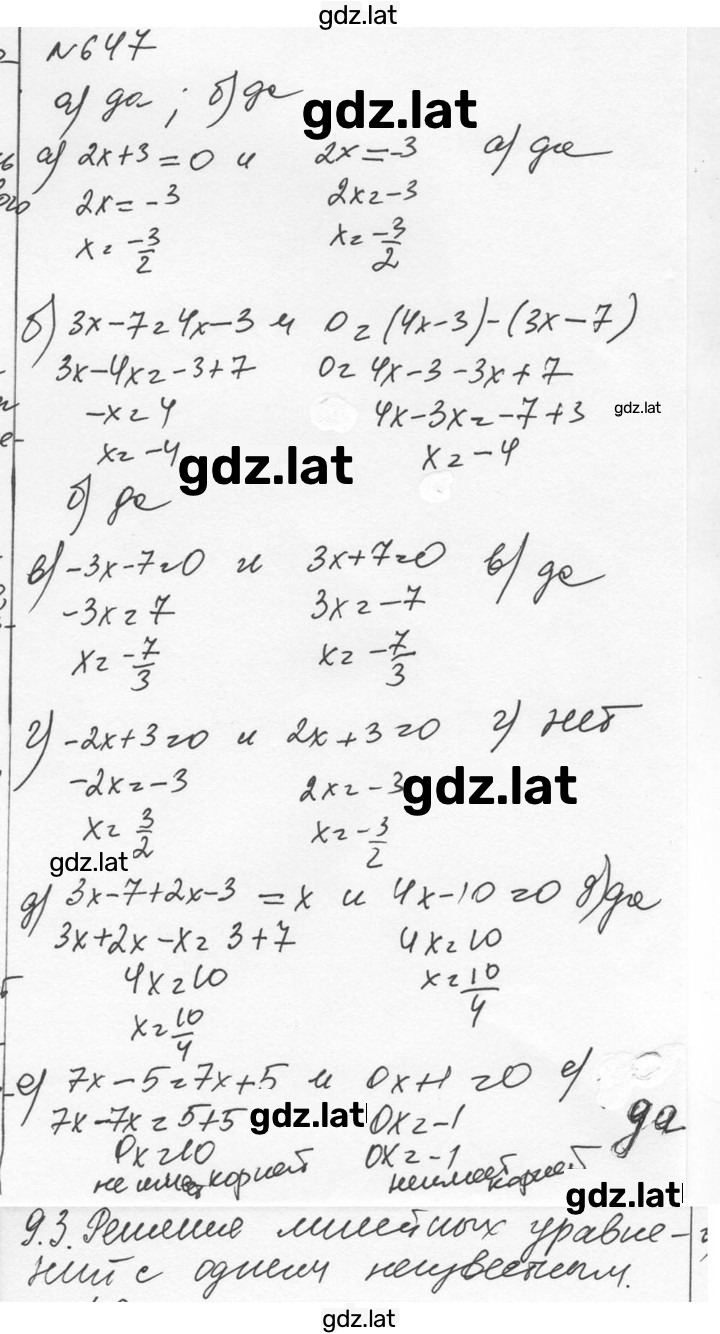 gdz.lat
№647
а) да ; б) да
gdz.lat
а) 2x+3=0 и 2x=-3 а) да
2x=-3 2x=-3
x=-3/2 x=-3/2
б) 3x-7=4x-3 и 0=(4x-3)-(3x-7)
3x-4x=-3+7 0=4x-3-3x+7
-x=4 4x-3x=-7+3 gdz.lat
x=-4 gdz.lat x=-4
б) да
в) -3x-7=0 и 3x+7=0 в) да
-3x=7 3x=-7
x=-7/3 x=-7/3
г) -2x+3=0 и 2x+3=0 г) нет
-2x=-3 2x=-3 gdz.lat
x=3/2 x=-3/2
gdz.lat
д) 3x-7+2x-3=x и 4x-10=0 д) да
3x+2x-x=3+7 4x=10
4x=10 x=10/4
x=10/4
е) 7x-5=7x+5 и 0x+1=0 е)
да
7x-7x=5+5 gdz.lat 0x=-1
0x=10 0x=-1
не имеет корней не имеет корней
gdz.lat
9.3. Решение линейных уравне-
ний с одним неизвестным.
gdz.lat